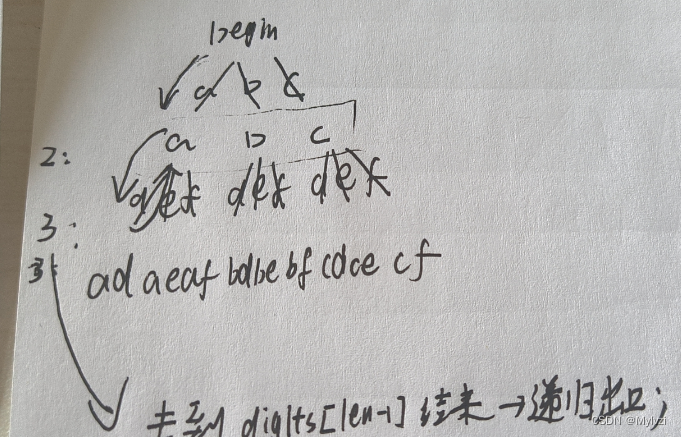 begin
a b c
2: a b c
def def def
3:
3: ad ae af bd be bf cd ce cf
走到 digits[len-1] 结束→递归出口;
CSDN @Mylvzi